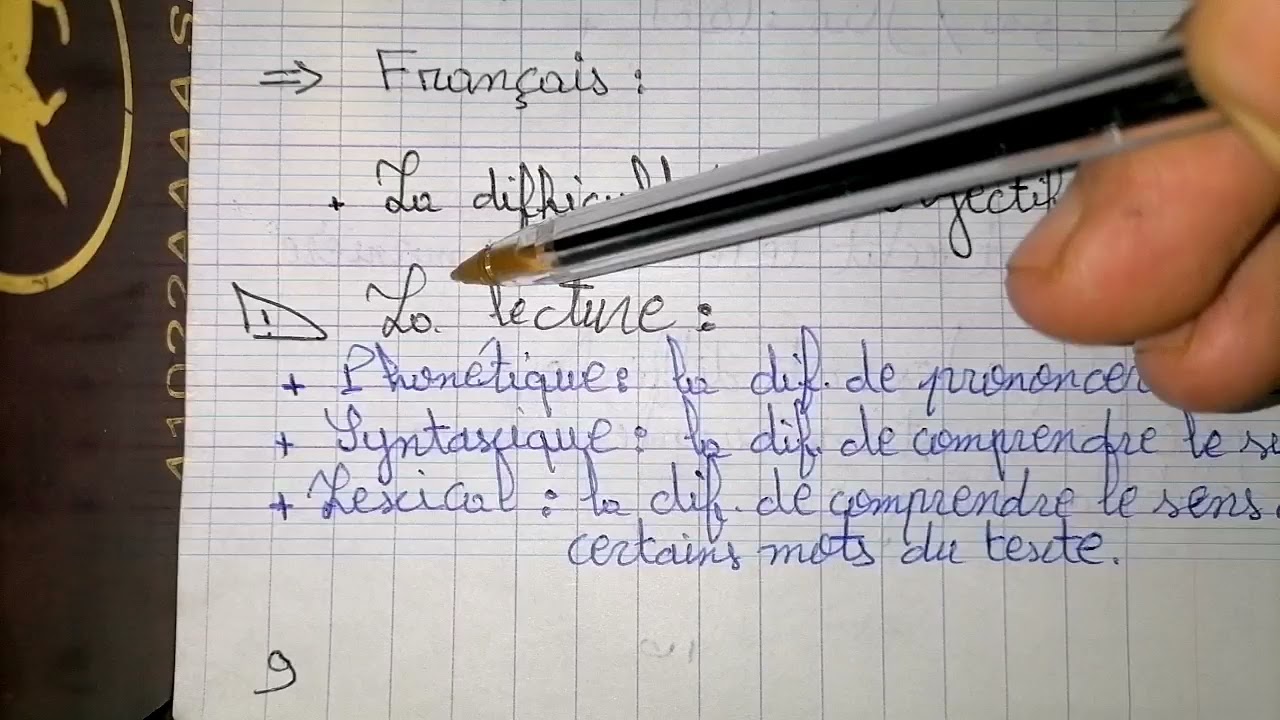 ⇒ Français :
+ La
1 La lecture :
+ Phonétique : la dif. de prononcer
+ Syntaxique : la dif. de comprendre le
+ Lexical : la dif. de comprendre le sens
certains mots du texte.
9
A1022AAAAS